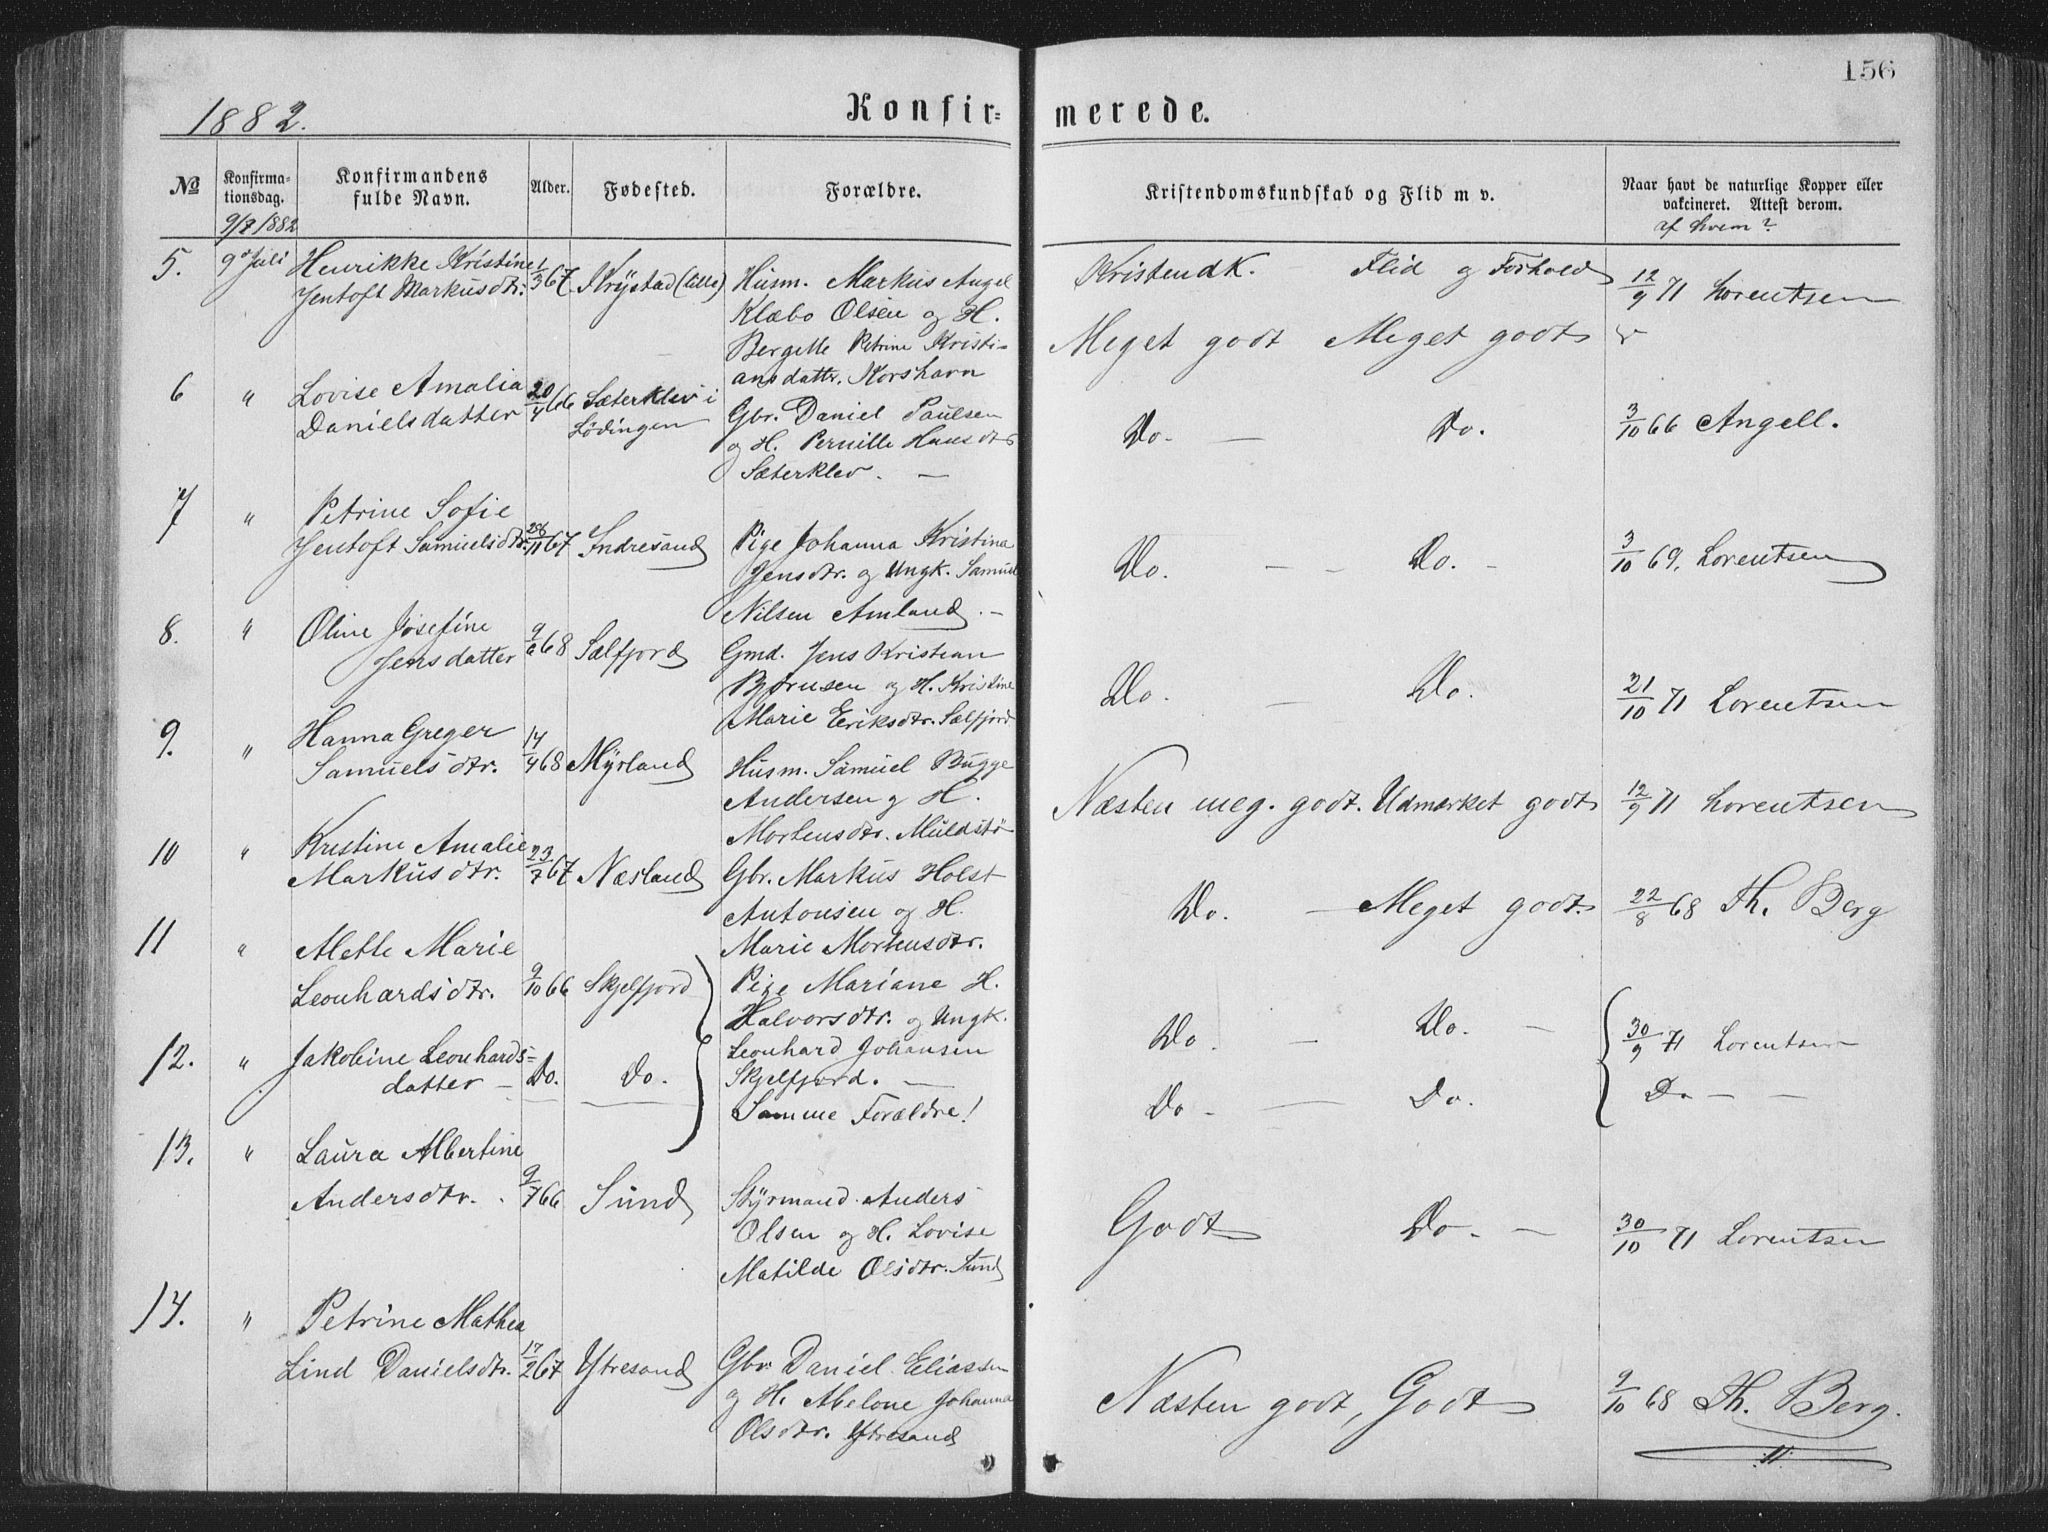 156
1882.
Konfir=
merede.
No
Konfirma-
tionsdag.
9/7 1882
Konfirmandens
fulde Navn.
Alder.
Fødested.
Forældre.
Kristendomskundskab og Flid m v.
Naar havt de naturlige Kopper eller
vakcineret. Attest derom.
af hvem?
5. 9de Juli Henrikke Kristine 1/3 67 Krystad (lille) Husm. Markus Angel
Jentoft Markusdtr.
Klæbo Olsen og H.
Bergette Petrine Kristi-
ansdattr. Korshavn
Kristendk. - Flid og Forhold
Meget godt Meget godt
12/9 71 Lorentsen
6 " Lovise Amalia 20/4 66 Sæterklev i
Danielsdatter Lödingen
Gbr. Daniel Paulsen
og H. Pernille Hansdtr
Sæterklev. —
Do. — Do.
3/10 66 Angell.
7 " Petrine Sofie
Jentoft Samuelsdtr. 28/11 67 Indresand
Pige Johanna Kristina
Jensdtr. og Ungk. Samuel
Nilsen Amland. -
Do. - - Do. -
3/10 69. Lorentsen
8. " Oline Josefine 9/6 68 Sælfjord
Jensdatter
Gmd. Jens Kristian
Bjørnsen og H. Kristine
Marie Eriksdtr. Sælfjord
Do. - Do.
21/10 71 Lorentsen
9. " Hanna Greger 14/4 68 Myrland
Samuelsdtr.
Husm. Samuel Bugge
Andersen og H.
Mortensdtr. Muldstø
Næsten meg. godt. Udmærket godt
12/9 71 Lorentsen
10 " Kristine Amalie 23/7 67 Næsland
Markusdtr.
Gbr. Markus Holst
Antonsen og H.
Marie Mortensdtr.
Do. - Meget godt.
22/8 68 Th. Berg
11 " Alette Marie
Leonhardsdtr. 9/10 66 Skjelfjord
Pige Mariane H.
Halvorsdtr. og Ungk.
Leonhard Johansen
Skjelfjord. —
Do. - Do. -
30/9 71 Lorentsen
12. " Jakobine Leonhards=
datter - Do. Do.
Samme Forældre!
Do - — Do.
Do - -
13. " Laura Albertine
Andersdtr. 9/7 66 Sund
Styrmand Anders
Olsen og H. Lovise
Matilde Olsdtr. Sund
Godt Do. -
30/10 71 Lorentsen
14. " Petrine Mathea
Lind Danielsdtr. 17/2 67 Ytresand
Gbr. Daniel Eliassen
og H. Abelone Johanna
Olsdtr. Ytresand
Næsten godt, Godt
9/10 68 Th. Berg.